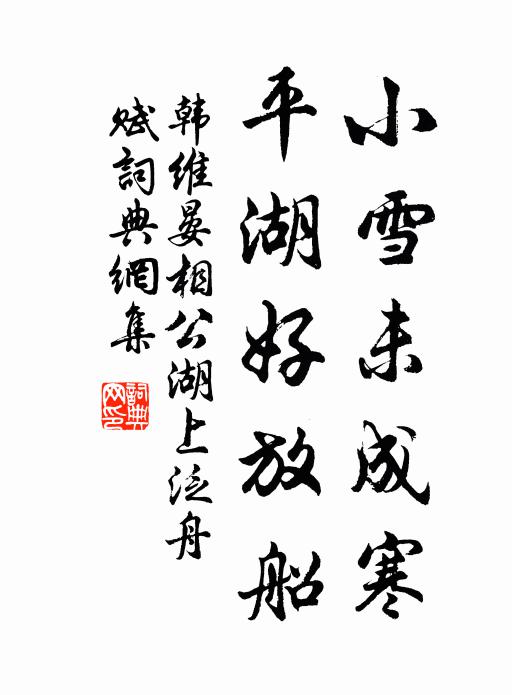 小雪未成寒
平湖好放船
韩維晏相公湖上泛舟
赋詞典網集
詞典網印